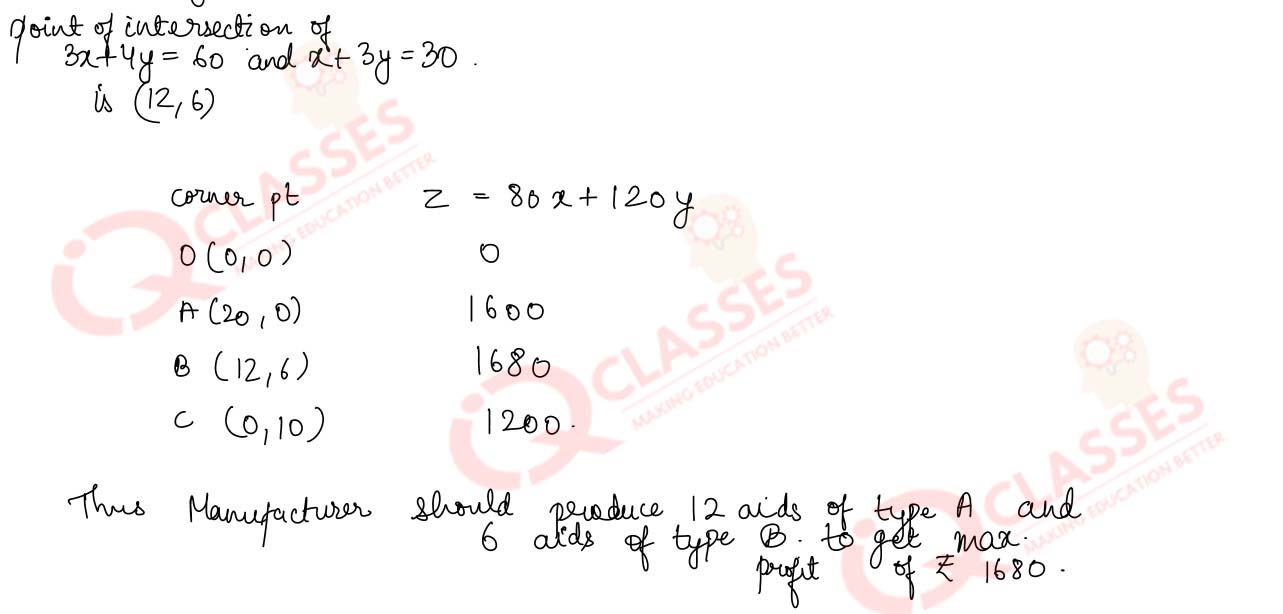 point of intersection of
3x+4y = 60 and x+3y = 30.
is (12,6)
corner pt Z = 80x+120y
O(0,0) 0
A(20,0) 1600
B (12,6) 1680
C (0,10) 1200.
Thus Manufacturer should produce 12 aids of type A and
6 aids of type B. to get max.
profit of ₹ 1680.
CLASSES
MAKING EDUCATION BETTER
CLASSES
MAKING EDUCATION BETTER
CLASSES
MAKING EDUCATION BETTER